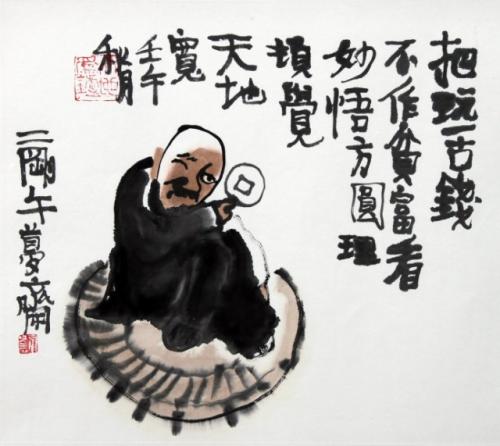 把玩一古錢
不作貧富看
妙悟方圓理
頓覺
天地
寬
壬午
秋月
二剛午夢齋